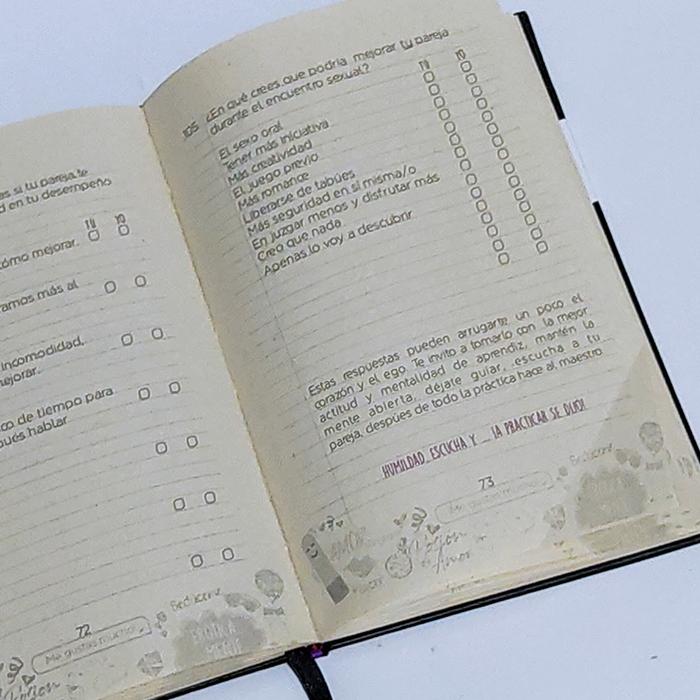 as si tu pareja te
d en tu desempeño
TÚ YO
cómo mejorar.
ramos más al
incomodidad,
mejorar.
co de tiempo para
pués hablar
Seducirme
72
Me gustas mucho
105 ¿En qué crees que podría mejorar tu pareja
durante el encuentro sexual?
TÚ YO
El sexo oral
Tener más iniciativa
Más creatividad
El juego previo
Más romance
Liberarse de tabúes
Más seguridad en sí misma/o
En juzgar menos y disfrutar más
Creo que nada
Apenas lo voy a descubrir
Estas respuestas pueden arrugarte un poco el
corazón y el ego. Te invito a tomarlo con la mejor
actitud y mentalidad de aprendiz, mantén la
mente abierta, déjate guiar, escucha a tu
pareja, después de todo la práctica hace al maestro
HUMILDAD, ESCUCHA Y ... ¡A PRACTICAR SE DIJO!
73
Me gustas mucho
Seducirme
AMOR
Poción
Amor